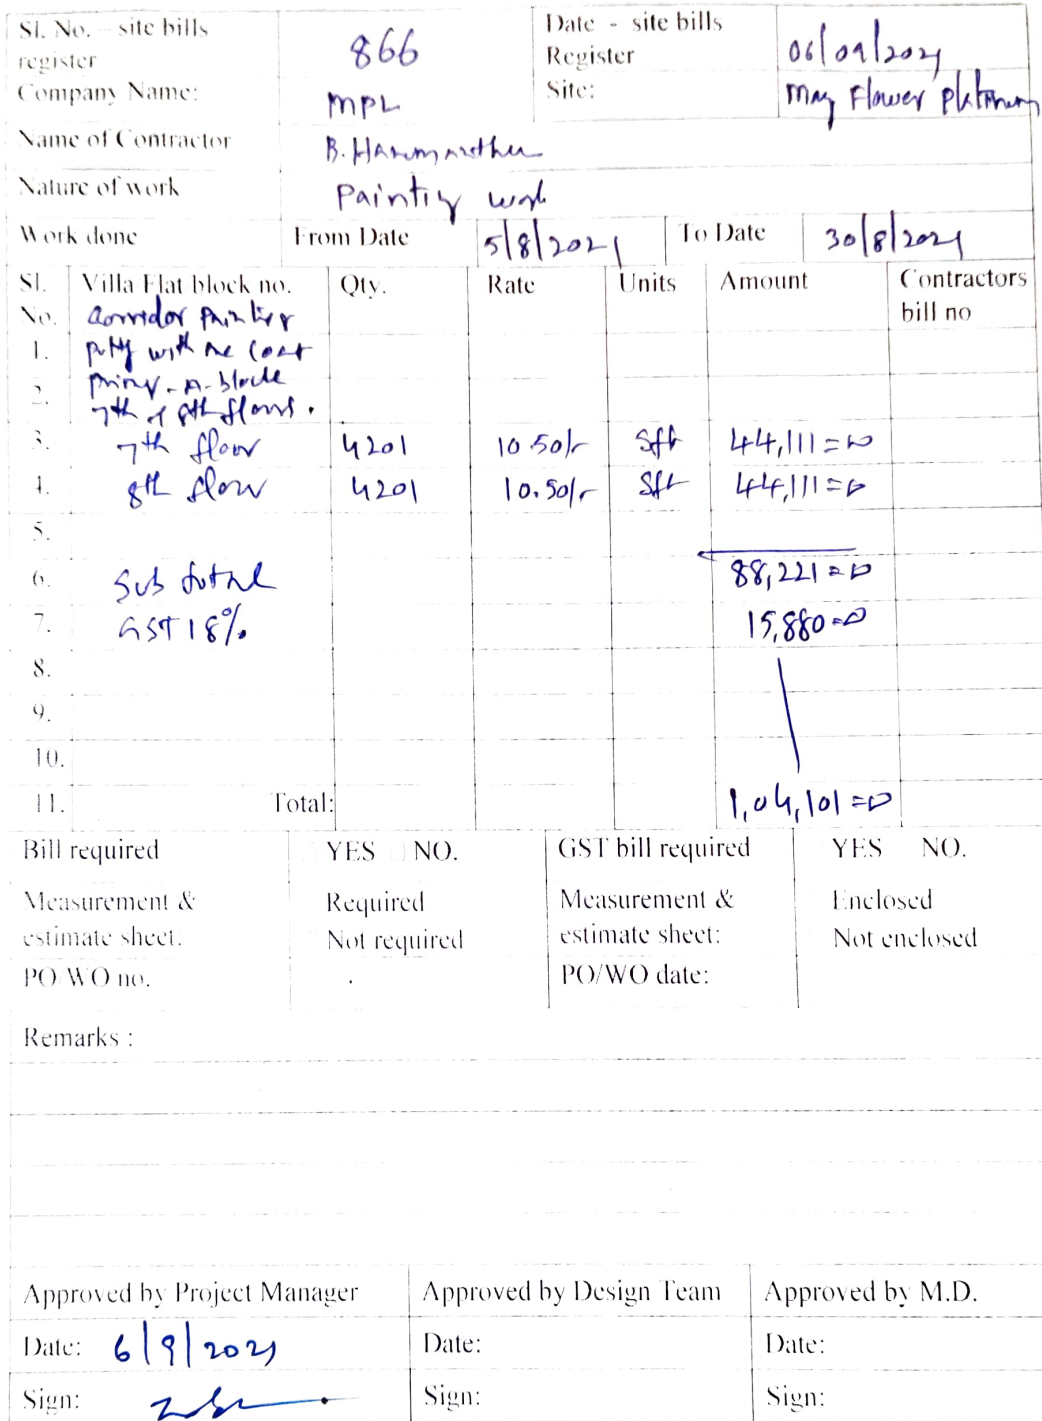 Sl. No. – site bills register 866 Date - site bills Register 06/09/2021
Company Name: MPL Site: May Flower Platinum
Name of Contractor B.
Nature of work Painting work
Work done From Date 5/8/2021 To Date 30/8/2021
Sl. No. Villa Flat block no. Qty. Rate Units Amount Contractors bill no
Corridor Painting
1. putty with one coat
2. primer - A-block
7th & 8th floors.
3. 7th floor 4201 10.50/- Sft 44,111=00
4. 8th floor 4201 10.50/- Sft 44,111=00
5.
6. Sub total 88,221=00
7. GST 18% 15,880=00
8.
9.
10.
11. Total: 1,04,101=00
Bill required YES NO. GST bill required YES NO.
Measurement & estimate sheet: Required Not required Measurement & estimate sheet: Enclosed Not enclosed
PO/WO no. PO/WO date:
Remarks :
Approved by Project Manager Approved by Design Team Approved by M.D.
Date: 6/9/2021 Date: Date:
Sign: Sign: Sign: